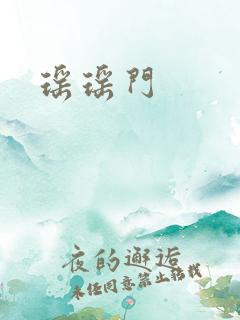 瑶瑶門
夜的邂逅
未经同意禁止转载